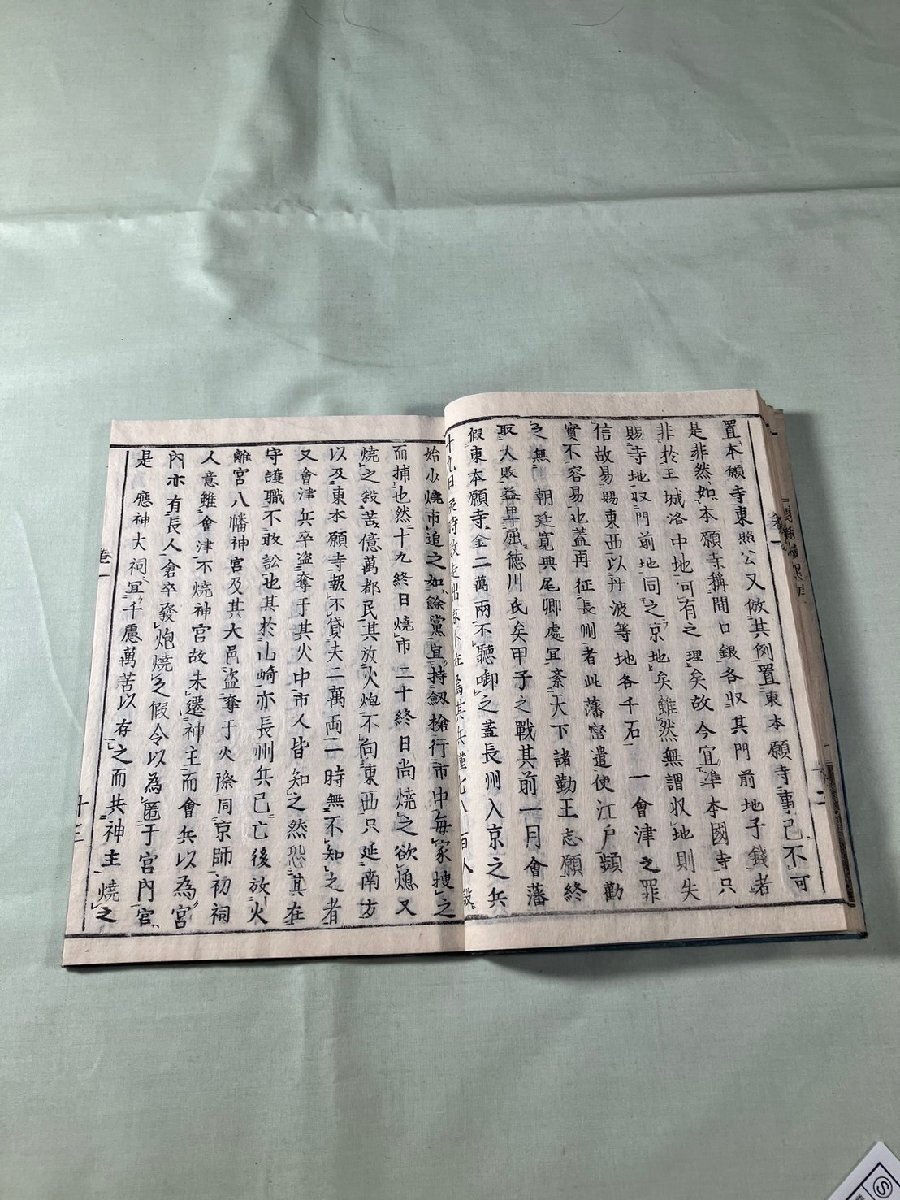 置本願寺東照公又倣其例置東本願寺事已不可
是非然如本願寺稱間口銀各収其門前地子錢者
非於王城洛中地可有之理矣故今宜準本國寺只
賜寺地収門前地同之京地矣雖然無謂収地則失
信故易賜東西以丹波等地各千石 一會津之罪
實不容易也蓋再征長州者此藩當遣使江戸頭勸
之無 朝廷寛典尾卿處宜紊天下諸勤王志願終
取大敗益早屈德川氏矣甲子之戰其前一月會藩
假東本願寺金二萬両不聽啣之蓋長州入京之兵
十九日
始少燒市追之如餘黨宜持劔槍行市中每家捜之
而捕也然十九終日燒市二十終日尚燒之欲燻又
燒之故苦億萬都民其放火炮不向東西只延南方
以及東本願寺報不貸夫二萬両一時無不知之者
又會津兵卒盜奪于其火中市人皆知之然恐其在
守護職不敢訟也其於山崎亦長州兵已亡後放火
離宮八幡神宮及其大邑盜奪于火際同京師初祠
人意雖會津不燒神宮故未遷神主而會兵以為宮
內亦有長人倉卒發炮燒之假令以為匿于宮內宮
是 應神大祠宜千慮萬苦以有之而共神主燒之
卷一
十三